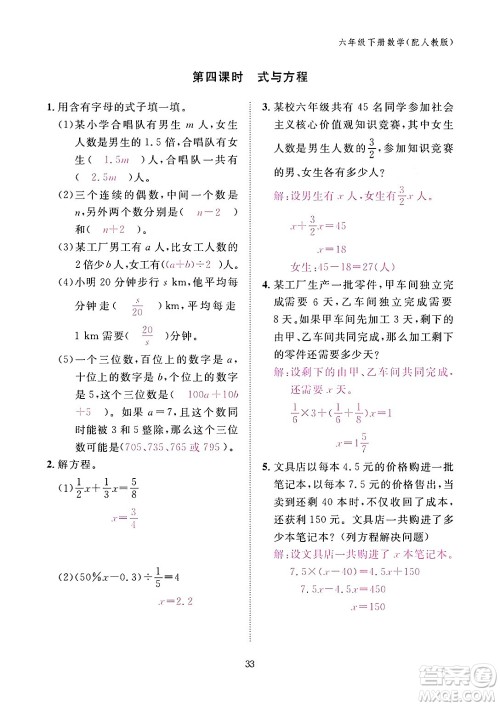 六年级下册数学(配人教版)
第四课时 式与方程
1. 用含有字母的式子填一填。
(1)某小学合唱队有男生 m 人,女生
人数是男生的 1.5 倍,女生有
( 1.5m )人,男、女生共有
( 2.5m )人。
(2)三个连续的偶数,中间的数是
n,另外两个数分别是( n-2 )
和( n+2 )。
(3)某工厂男工有 a 人,比女工人数的
2 倍少 b 人,女工有((a+b)÷2)人。
(4)小明 20 分钟步行 s km,他平均每
分钟走( s/20 )km,每走
1 km 需要( 20/s )分钟。
(5)一个三位数,百位上的数字是 a,
十位上的数字是 b,个位上的数字
是 5,这个三位数是( 100a+10b
+5 )。当 a=7,且这个数同
时能被 3 和 5 整除时,这个三位
数可能是(705、735、765 或 795)。
2. 解方程。
(1) 1/2 x + 1/3 x = 5/8
x=3/4
(2)(50%x-0.3)÷1/5=4
x=2.2
3. 某校六年级共有 45 名同学参加社会
主义核心价值观知识竞赛,其中女生
人数是男生人数的 3/2,参加知识竞赛
的男、女生各有多少人?
解:设男生有 x 人,女生有 3/2 x 人。
x+3/2 x=45
x=18
女生:45-18=27(人)
4. 某工厂生产一批零件,甲车间独立完成
需要 6 天,乙车间独立完成需要
8 天。如果甲车间先加工 3 天,剩下的
由甲、乙车间共同完成,那么加工剩下
的零件还需要多少天?
解:设剩下的由甲、乙车间共同完成,
还需要 x 天。
1/6×3+(1/6+1/8)x=1
x=1 5/7
5. 文具店以每本 4.5 元的价格购进一批
笔记本,以每本 7.5 元的价格卖出。当
卖到还剩 40 本时,除收回成本外,还
获利 150 元。文具店一共购进了多
少本笔记本?(列方程解决问题)
解:设文具店一共购进了 x 本笔记本。
7.5×(x-40)=4.5x+150
3x=450
x=150
33
答案圈